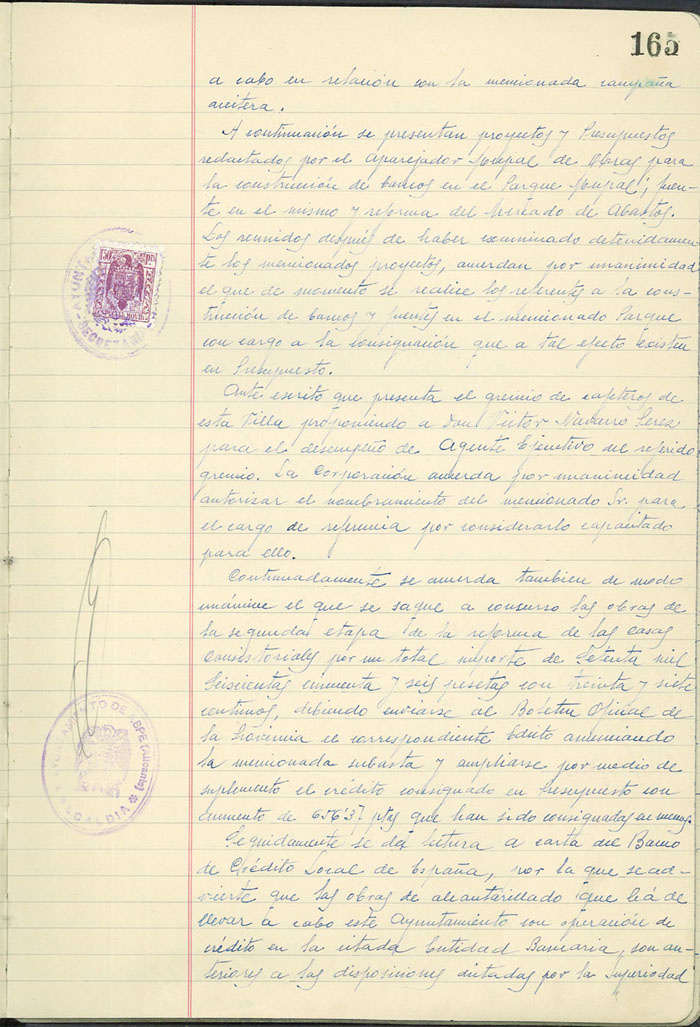 165
a cabo en relación con la mencionada campaña
aceitera.
A continuación se presentan proyectos y Presupuestos
redactados por el Aparejador Mupal de Obras para
la construcción de bancos en el Parque Mupal; fuen-
te en el mismo y reforma del Mercado de Abastos.
Los reunidos después de haber examinado detenidamen-
te los mencionados proyectos, acuerdan por unanimidad
el que de momento se realice los referentes a la cons-
trucción de bancos y fuentes en el mencionado Parque
con cargo a la consignación que a tal efecto existen
en Presupuesto.
Ante escrito que presenta el gremio de cafeteros de
esta Villa proponiendo a Don Victor Navarro Perez
para el desempeño de Agente Ejecutivo del referido
gremio. La Corporación acuerda por unanimidad
autorizar el nombramiento del mencionado Sr. para
el cargo de referencia por considerarlo capacitado
para ello.
Continuadamente se acuerda tambien de modo
unánime el que se saque a concurso las obras de
la segunda etapa de la reforma de las Casas
Consistoriales por un total importe de Setenta mil
Seiscientas cincuenta y seis pesetas con treinta y siete
centimos, debiendo enviarse al Boletin Oficial de
la Provincia el correspondiente Edicto anunciando
la mencionada subasta y ampliarse por medio de
suplemento el crédito consignado en Presupuesto con
aumento de 656'37 ptas que han sido consignadas en menos.
Seguidamente se dá lectura a carta del Banco
de Crédito Local de España, por la que se ad-
vierte que las obras de alcantarillado que há de
llevar a cabo este Ayuntamiento con operación de
crédito en la citada Entidad Bancaria, son an-
teriores a las disposiciones dictadas por la Superioridad
SECRETARIA
AYUNTAMIENTO DE (Alicante)
ALCALDIA